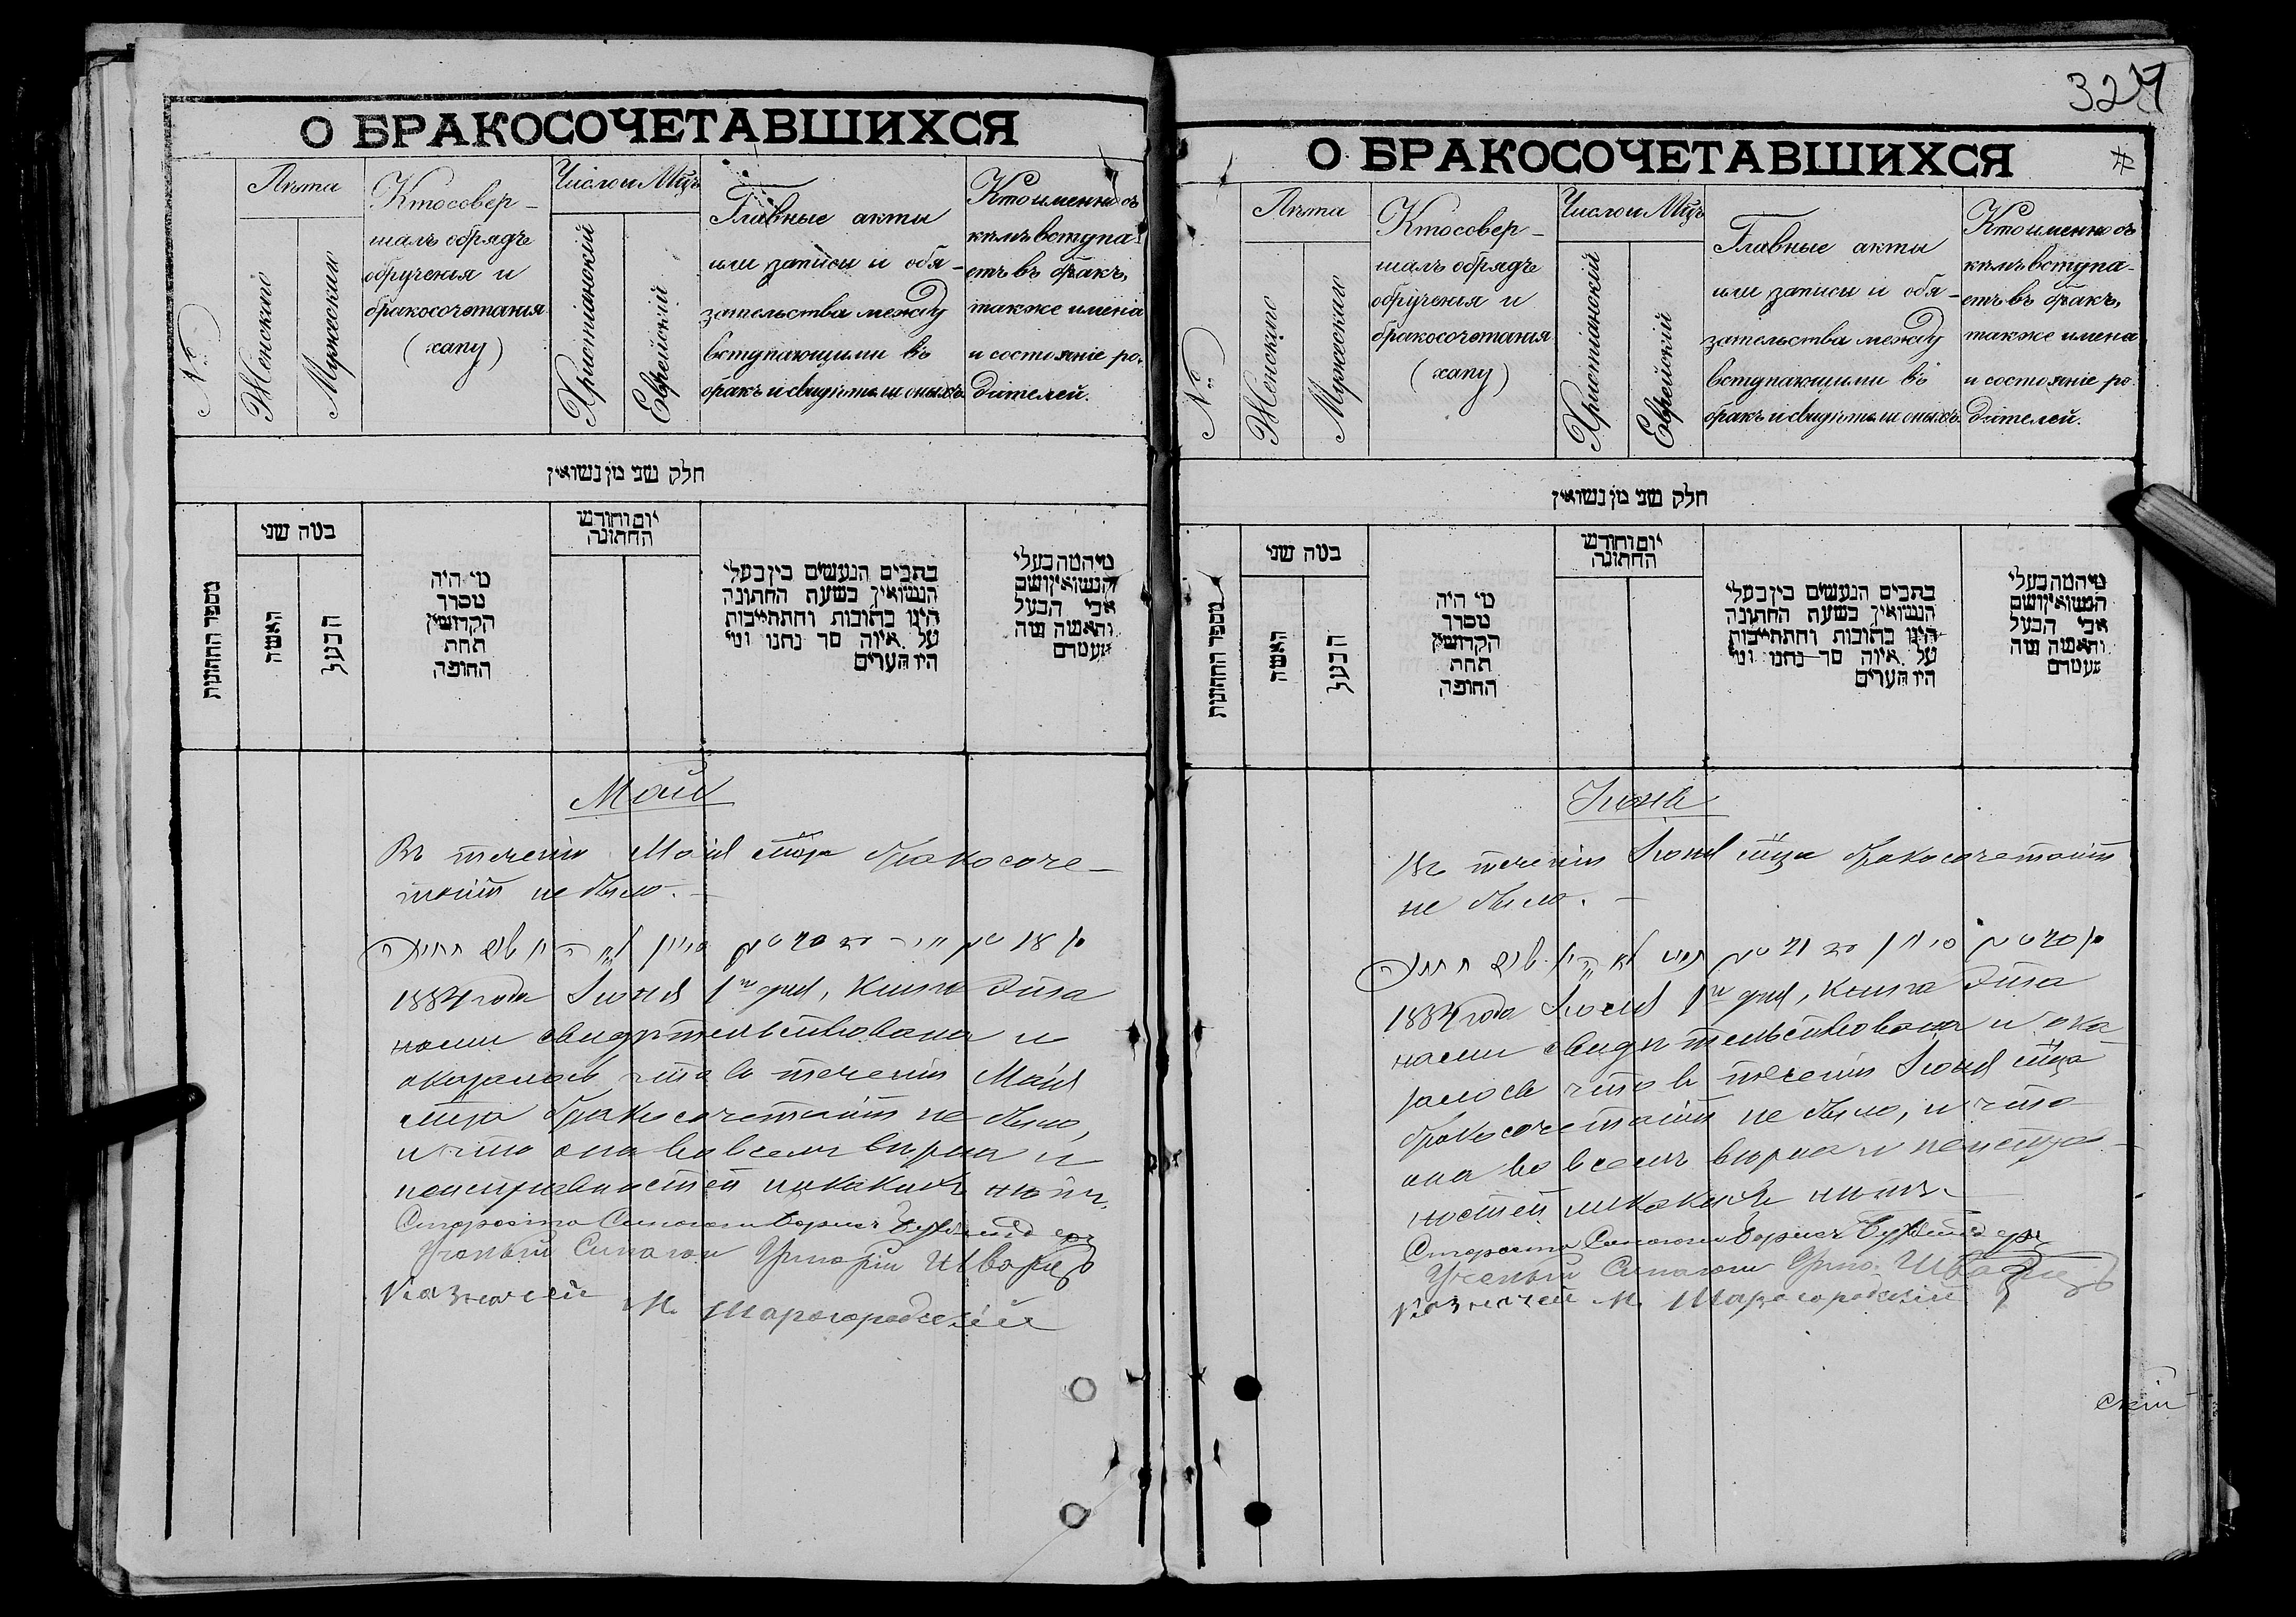 О БРАКОСОЧЕТАВШИХСЯ
№
Лѣта
Женскаго
Мужескаго
Кто совер-
шалъ обрядъ
обрученія и
бракосочетанія
(хапу)
Число и Мцъ
Христіанскій
Еврейскій
Главные акты
или записи и обя-
зательства между
вступающими въ
бракъ и свидѣтели оныхъ
Кто именно съ
кѣмъ вступа-
етъ въ бракъ,
также имена
и состояніе ро-
дителей.
חלק שני מן נשואין
מספר החתונות
כמה שני
האשה
הבעל
מי היה
מסדר
הקדושין
תחת
החופה
יום וחודש
החתונה
כתבים הנעשים בין בעלי
הנשואין בשעת החתונה
היינו כתובות והתחייבות
על איזה סך נתנו ומי
היו העדים
מי המה בעלי
הנשואין ושם
אבי הבעל
והאשה ומה
מעמדם
Май
Въ теченіи Маія мца бракосоче-
таній не было. —
1884 года Іюня 1го дня, Книга эта
нами свидѣтельствована и
оказалось, что въ теченіи Маія
мца бракосочетаній не было,
и что она во всемъ вѣрна и
неисправностей никакихъ нѣтъ.
Староста Синагоги Борисъ
Ученый Синагоги Григорій Шварцъ
Казначей М. Шарогородскій
324
О БРАКОСОЧЕТАВШИХСЯ
№
Лѣта
Женскаго
Мужескаго
Кто совер-
шалъ обрядъ
обрученія и
бракосочетанія
(хапу)
Число и Мцъ
Христіанскій
Еврейскій
Главные акты
или записи и обя-
зательства между
вступающими въ
бракъ и свидѣтели оныхъ
Кто именно съ
кѣмъ вступа-
етъ въ бракъ,
также имена
и состояніе ро-
дителей.
חלק שני מן נשואין
מספר החתונות
כמה שני
האשה
הבעל
מי היה
מסדר
הקדושין
תחת
החופה
יום וחודש
החתונה
כתבים הנעשים בין בעלי
הנשואין בשעת החתונה
היינו כתובות והתחייבות
על איזה סך נתנו ומי
היו העדים
מי המה בעלי
הנשואין ושם
אבי הבעל
והאשה ומה
מעמדם
Іюнь
Въ теченіи Іюня мца бракосочетаній
не было. —
1884 года Іюля 1го дня, Книга эта
нами свидѣтельствована и ока-
залось что въ теченіи Іюня мца
бракосочетаній не было, и что
она во всемъ вѣрна и неисправ-
ностей никакихъ нѣтъ. —
Староста Синагоги Борисъ
Ученый Синагоги Григо. Шварцъ
Казначей М. Шарогородскій
скій